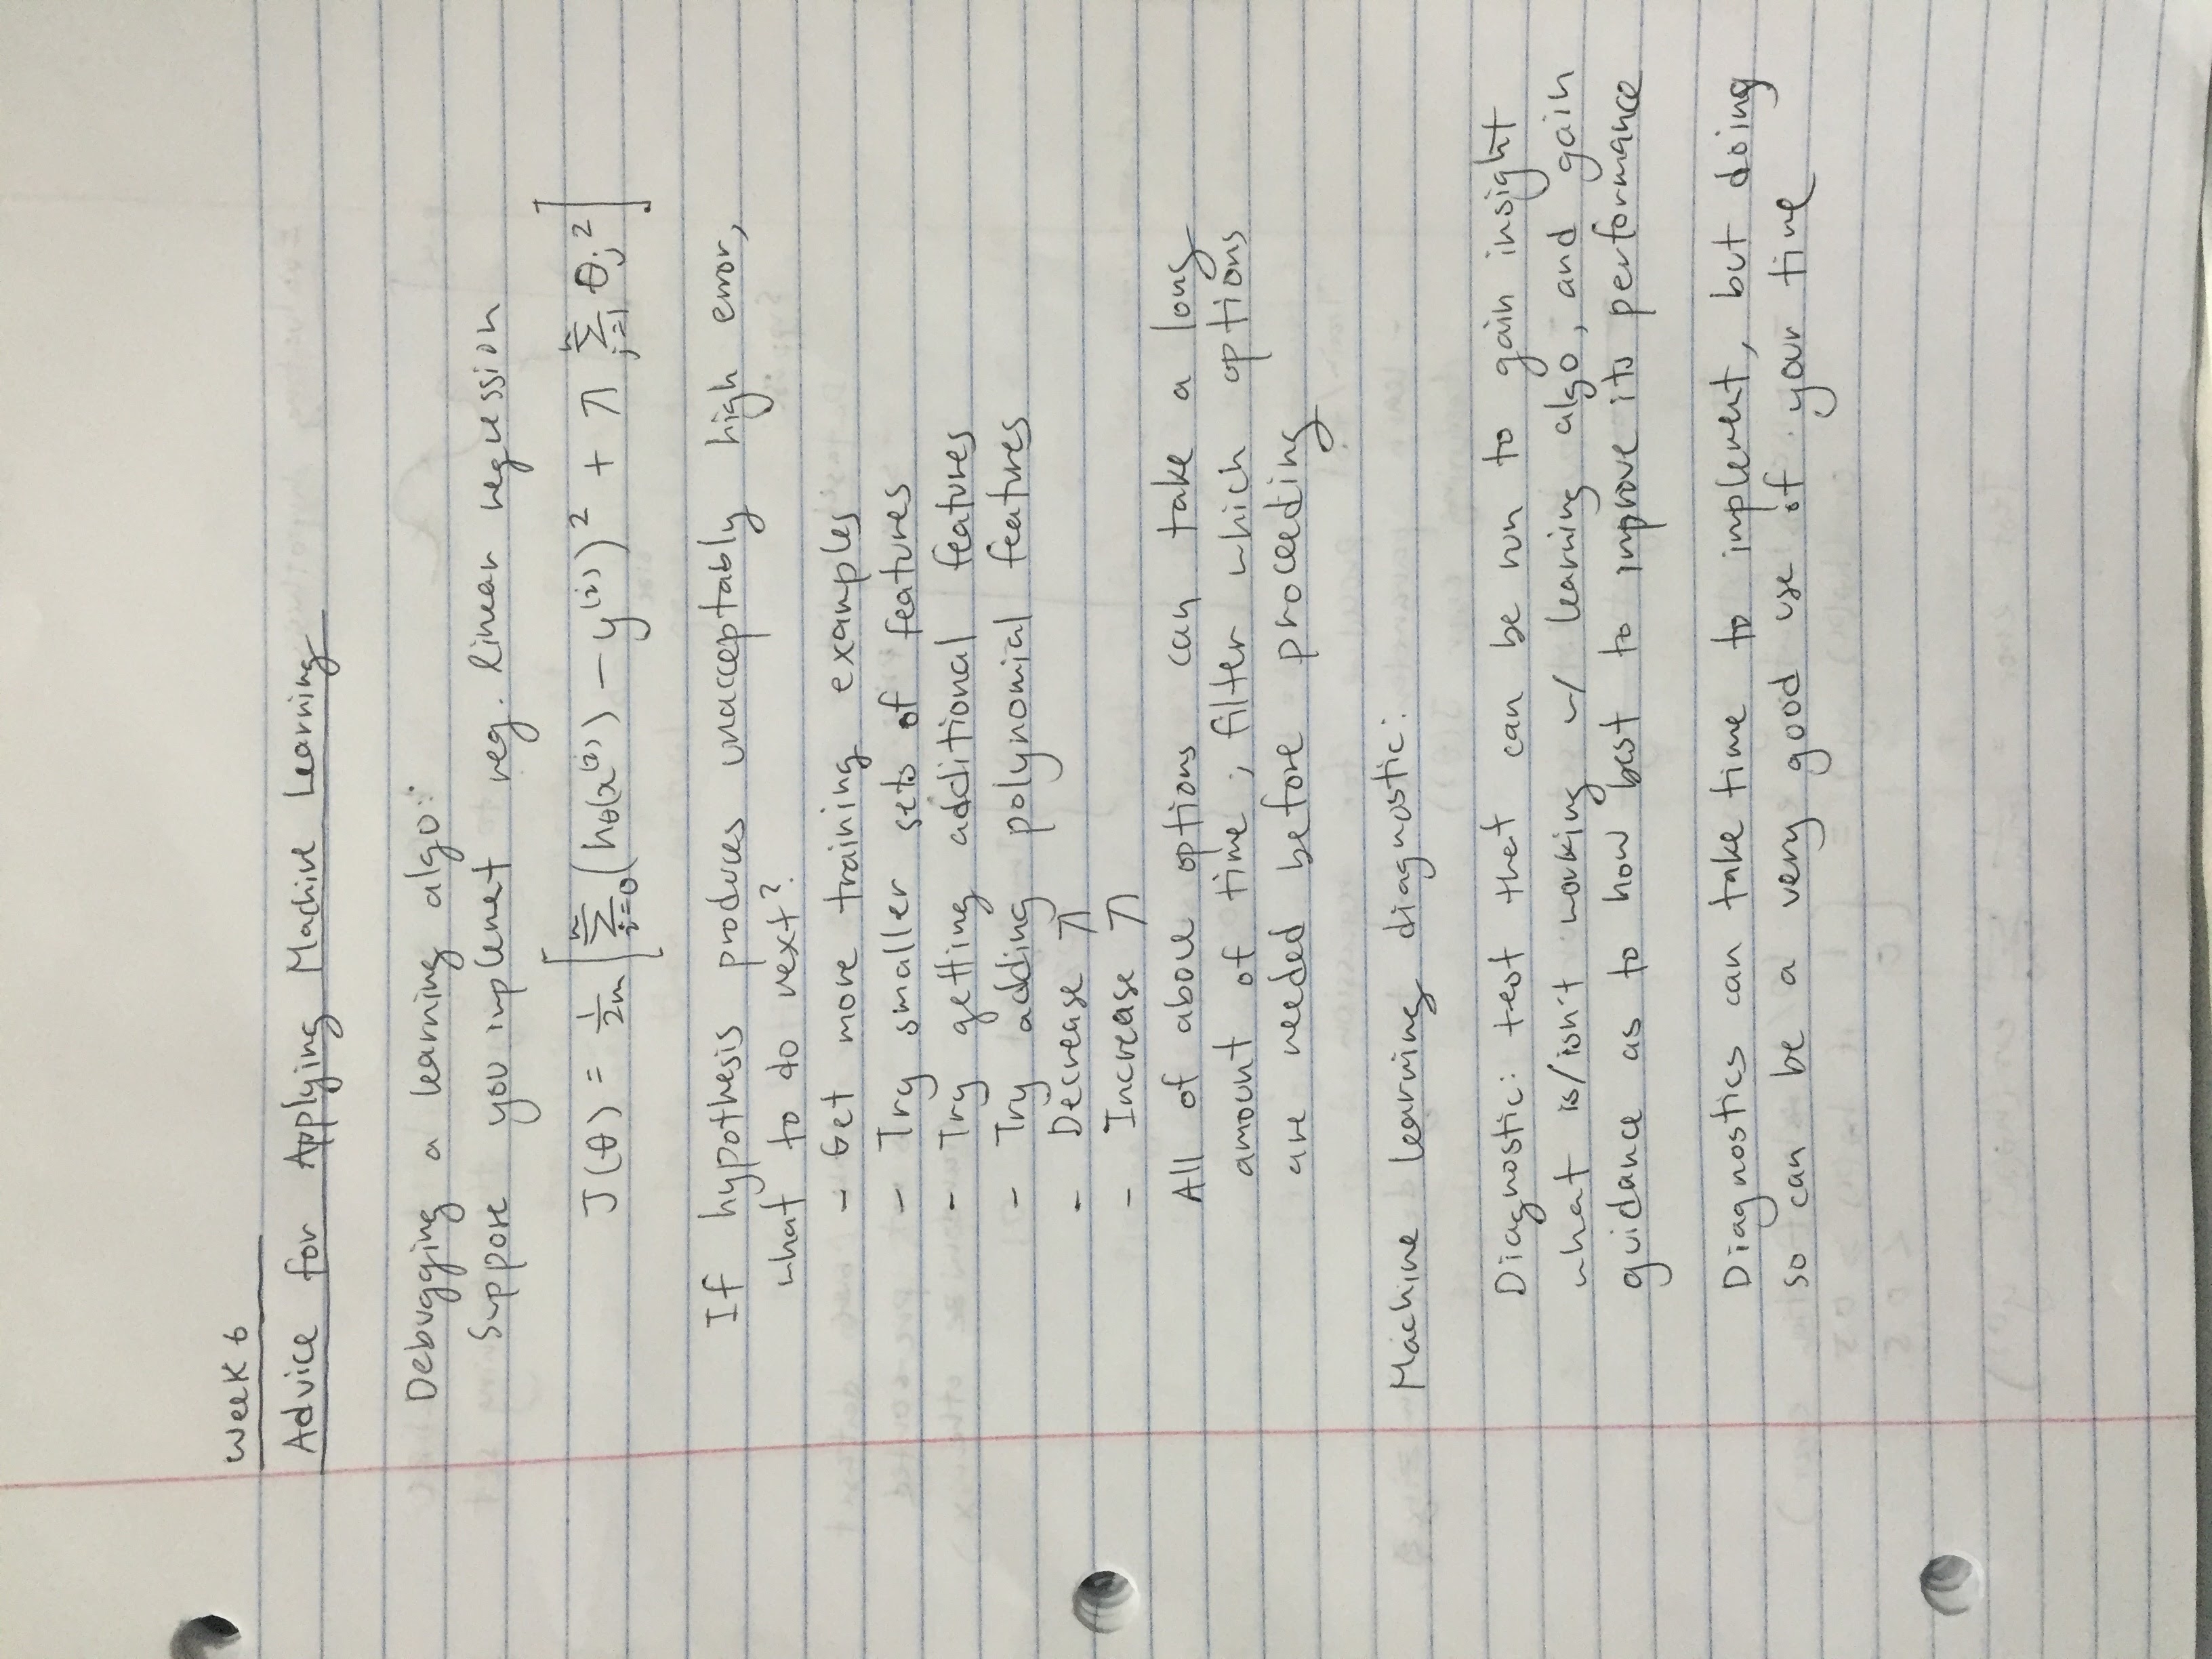 Week 6
Advice for Applying Machine Learning
Debugging a learning algo:
Suppose you implemet reg. linear regression
J(θ) = 1/2m [ Σ_{i=0}^{m} (hθ(x^(i)) - y^(i))² + λ Σ_{j=1}^{n} θj² ]
If hypothesis produces unacceptably high error,
what to do next?
- Get more training examples
- Try smaller sets of features
- Try getting additional features
- Try adding polynomial features
- Decrease λ
- Increase λ
All of above options can take a long
amount of time; filter which options
are needed before proceeding
Machine learning diagnostic:
Diagnostic: test that can be run to gain insight
what is/isn't working w/ learning algo, and gain
guidance as to how best to improve its performance
Diagnostics can take time to implement, but doing
so can be a very good use of your time